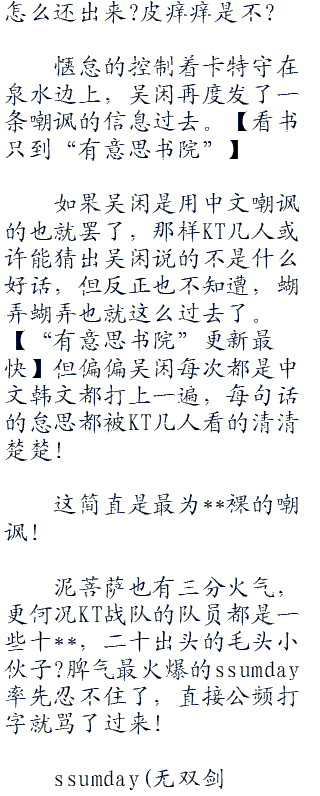 怎么还出来?皮痒痒是不?
惬怠的控制着卡特守在
泉水边上，吴闲再度发了一
条嘲讽的信息过去。【看书
只到“有意思书院”】
如果吴闲是用中文嘲讽
的也就罢了，那样KT几人或
许能猜出吴闲说的不是什么
好话，但反正也不知道，蝴
弄蝴弄也就这么过去了。
【“有意思书院”更新最
快】但偏偏吴闲每次都是中
文韩文都打上一遍，每句话
的怠思都被KT几人看的清清
楚楚!
这简直是最为**裸的嘲
讽!
泥菩萨也有三分火气，
更何况KT战队的队员都是一
些十**，二十出头的毛头小
伙子?脾气最火爆的ssumday
率先忍不住了，直接公频打
字就骂了过来!
ssumday(无双剑